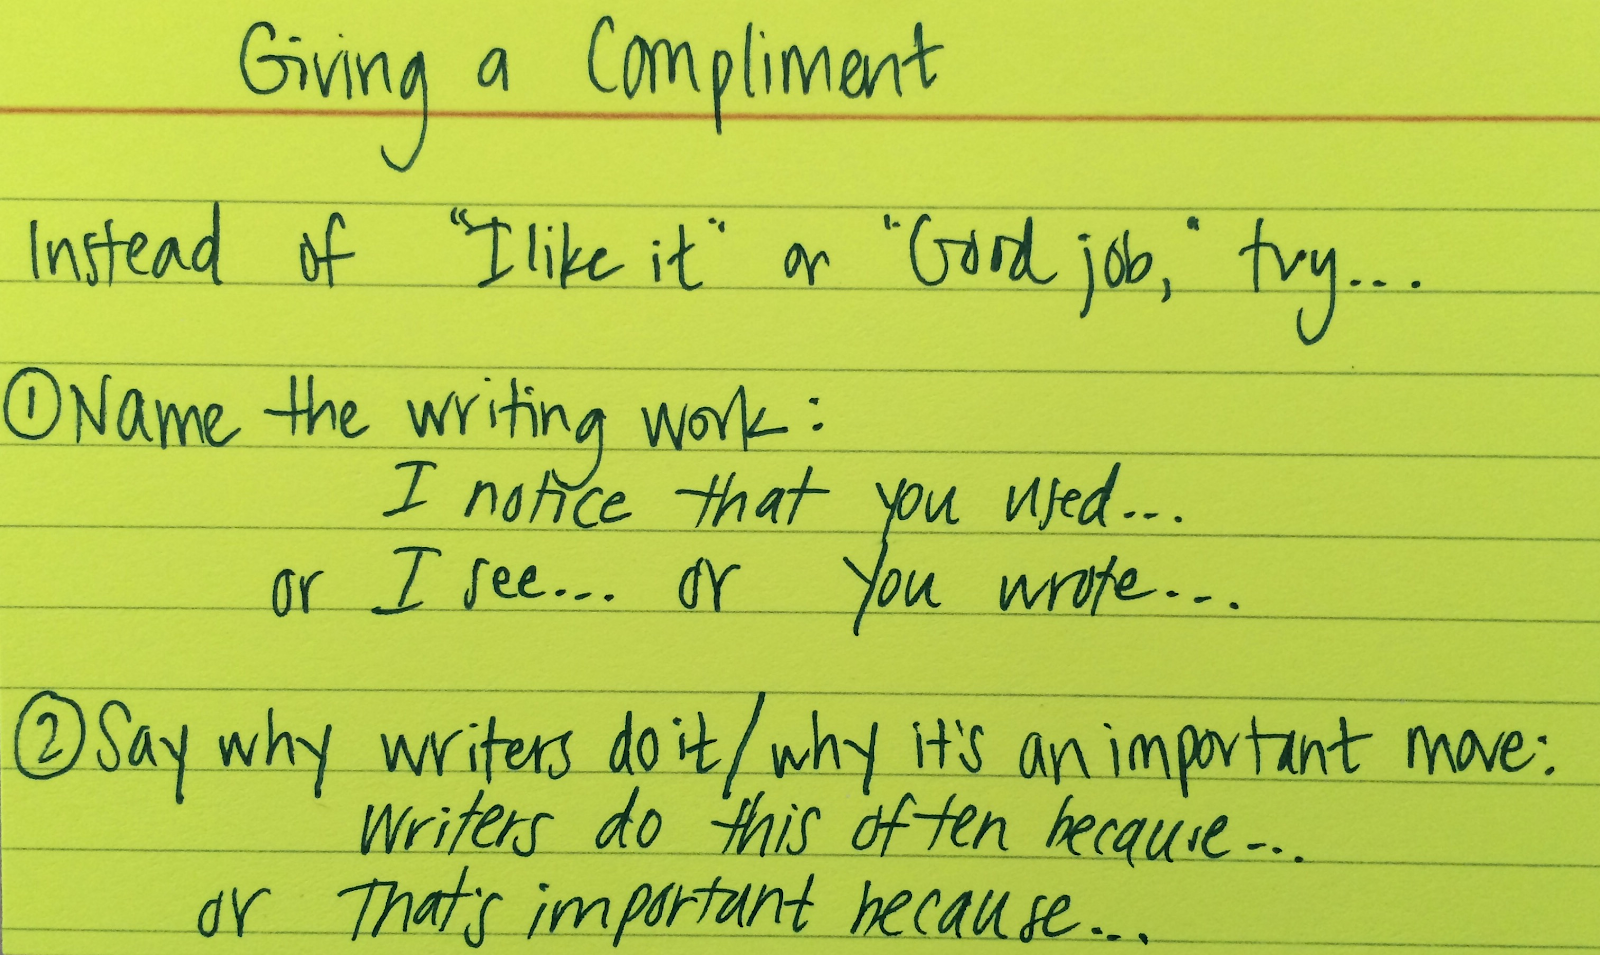 Giving a Compliment
Instead of "I like it" or "Good job," try...
① Name the writing work:
I notice that you used...
or I see... or You wrote...
② Say why writers do it/why it's an important move:
Writers do this often because...
or That's important because...